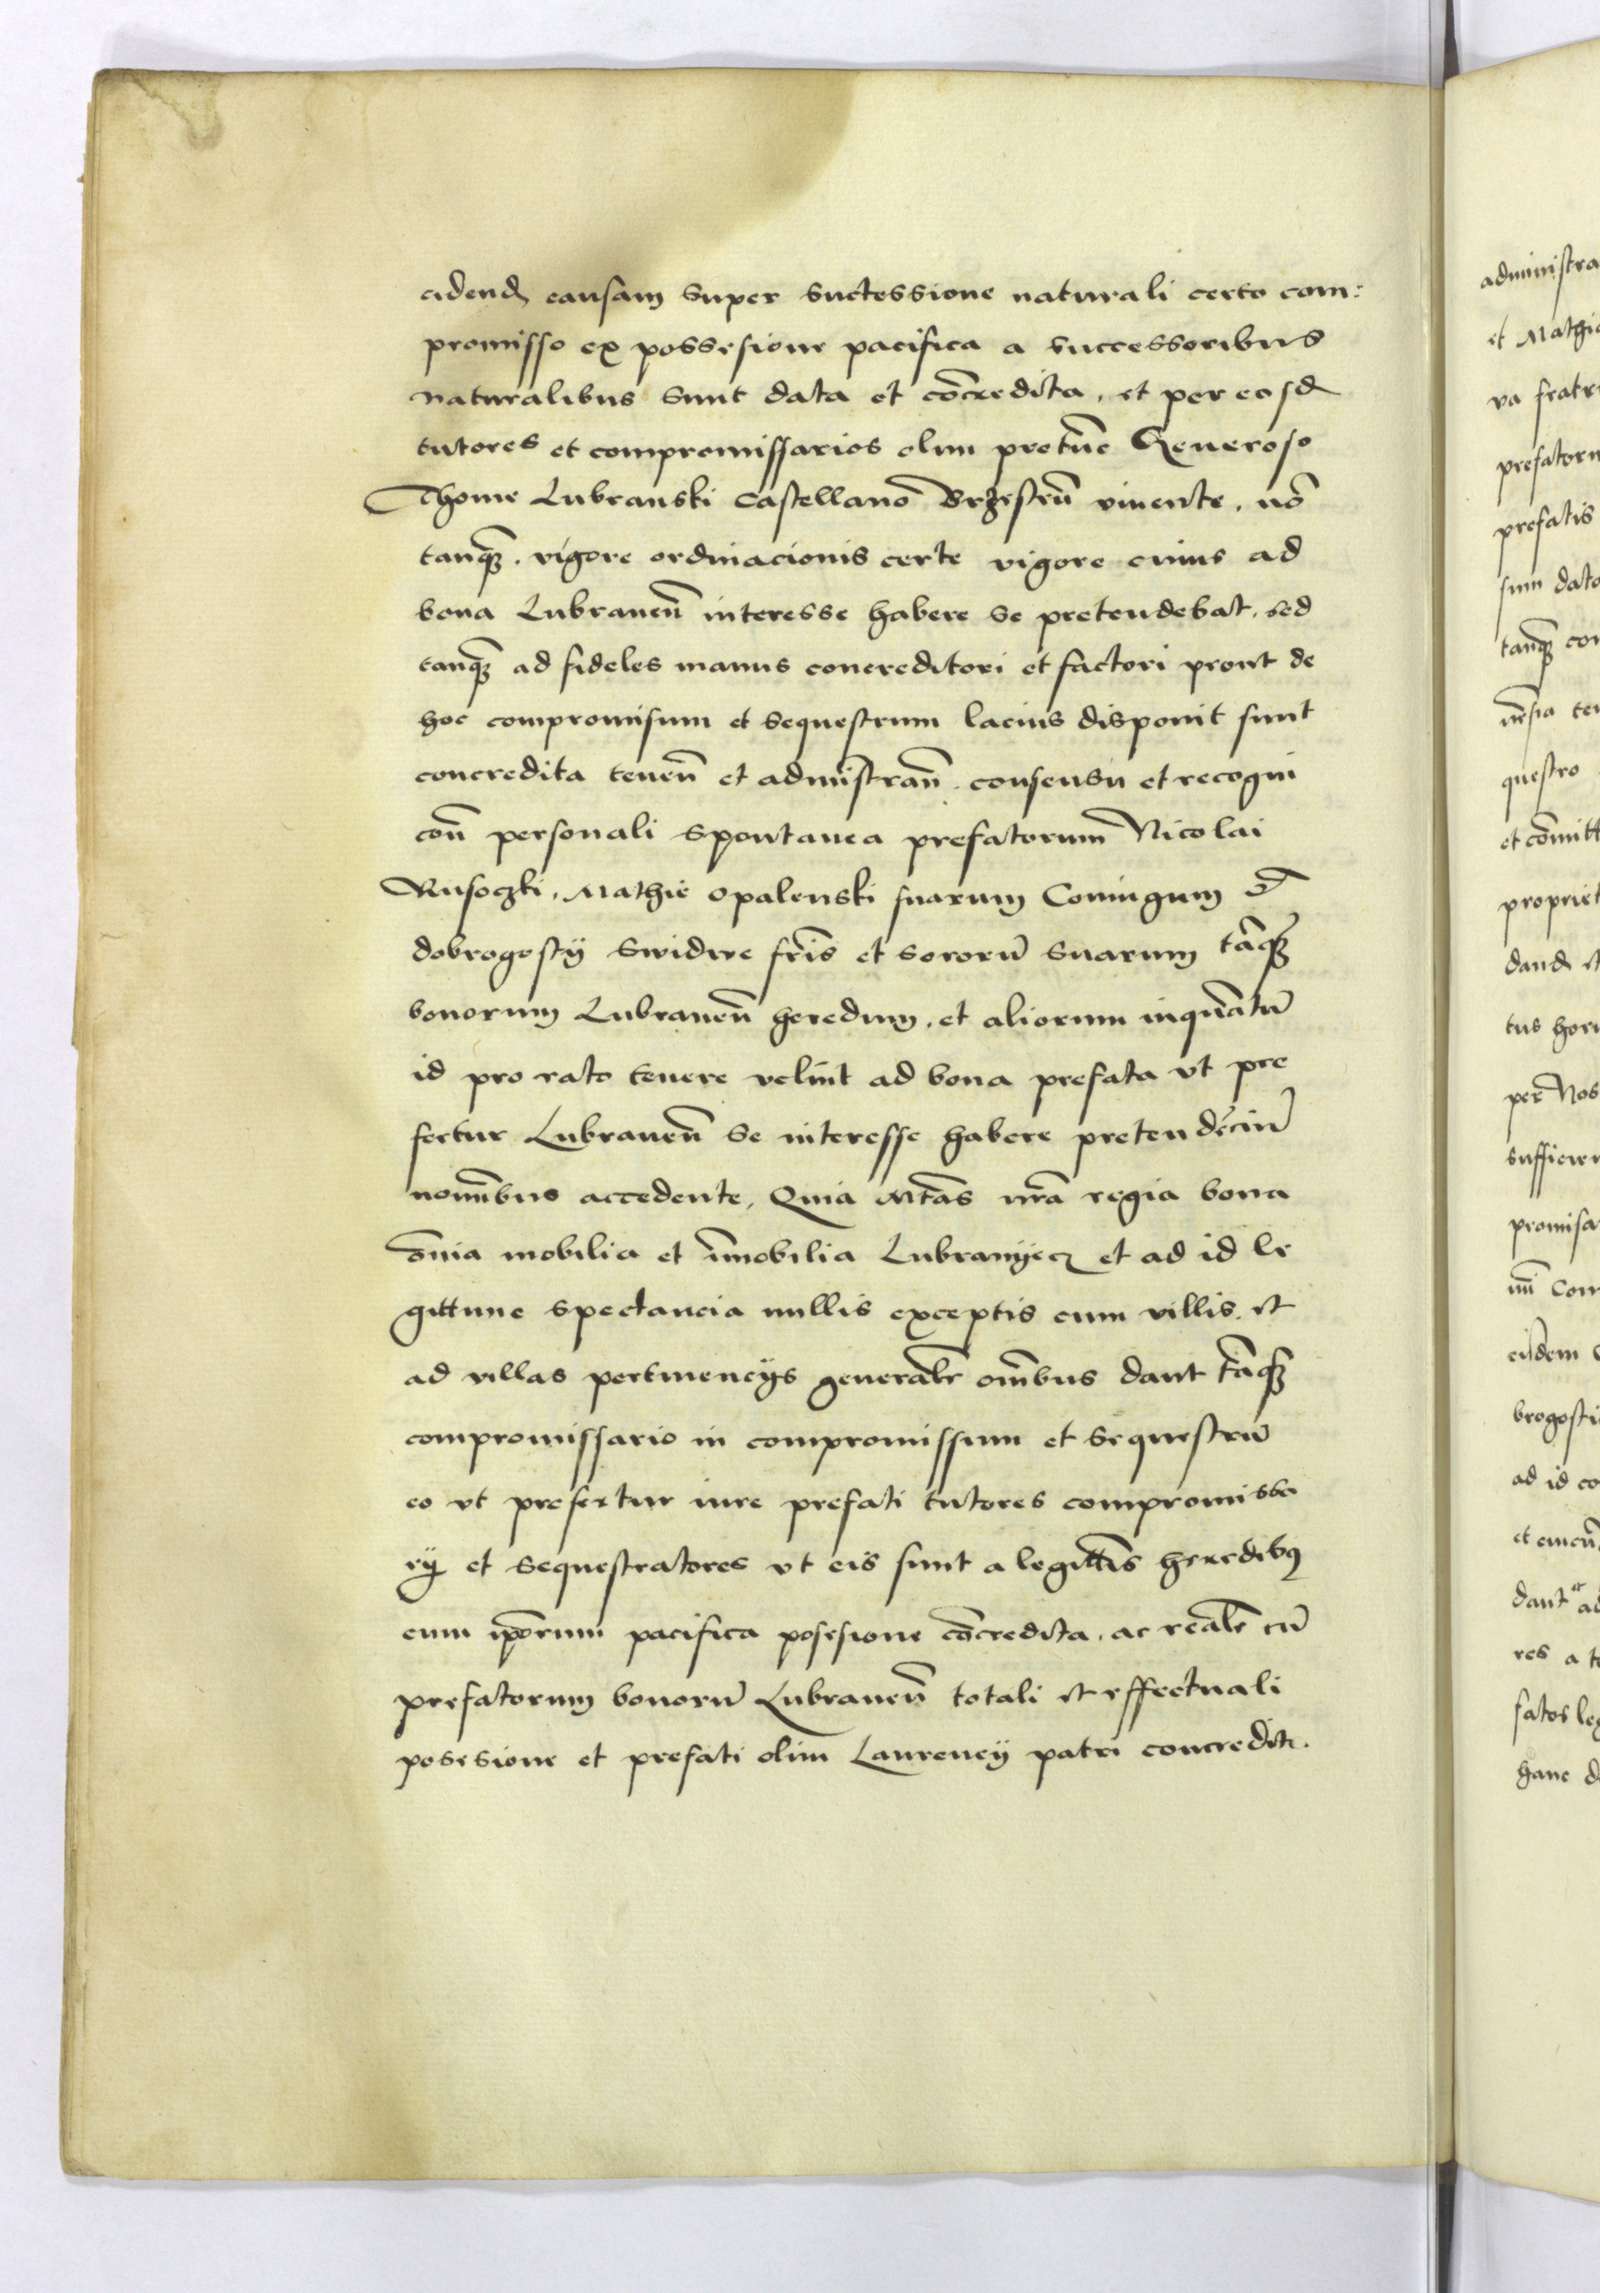 cidend causam super suctessione naturali certo com:
promisso ex possesione pacifica a successoribus
naturalibus sunt data et cōcredita, et per eosd
tutores et compromissarios olim protūc Generoso
Thome Lubranski Castellano Brzesteñ vivente, nō
tanqʒ, vigore ordinacionis certe vigore cuius ad
bona Lubraneñ interesse habere se pretendebat, sed
tanqʒ ad fideles manus concreditori et factori prout de
hoc compromisum et sequestrum lacius disponit sunt
concredita teneñ et admīstrañ, consensu et recogni
coñ personali spontanea prefatorum Nicolai
Rusoczki, Mathie opalenski suarum Coniugum
dobrogostÿ swidwe fr̄is et sororū suarum tāqʒ
bonorum Lubraneñ heredum, et aliorum inquātū
id pro rato tenere velint ad bona prefata vt pre
fertur Lubraneñ se interesse habere pretendēciū
nomībus accedente, Quia Mtās nr̄a regia bona
ōnia mobilia et īmobilia Lubranÿecz et ad id le
gittime spectancia nullis exceptis cum villis, et
ad villas pertinencÿs generalr̄ omībus dant tāqʒ
compromissario in compromissum et sequestrū
eo vt prefertur iure prefati tutores compromissa
rÿ et sequestratores vt eis sunt a legittīs heredibꝯ
cum ip̄orum pacifica posesione cōcredita, ac realr̄ cū
prefatorum bonorū Lubraneñ totali et effectuali
posesione et prefati olim Laurencÿ patri concredit.
administra
et Mathie
va fratr
prefatoru
prefatis
sum dato
tanqʒ con
questro
et cōmitt
propriet
dand et
tus horu
per Nos
sufficien
promisa
eidem
brogosti
ad id co
dant
res a t
fatos leg
hanc d